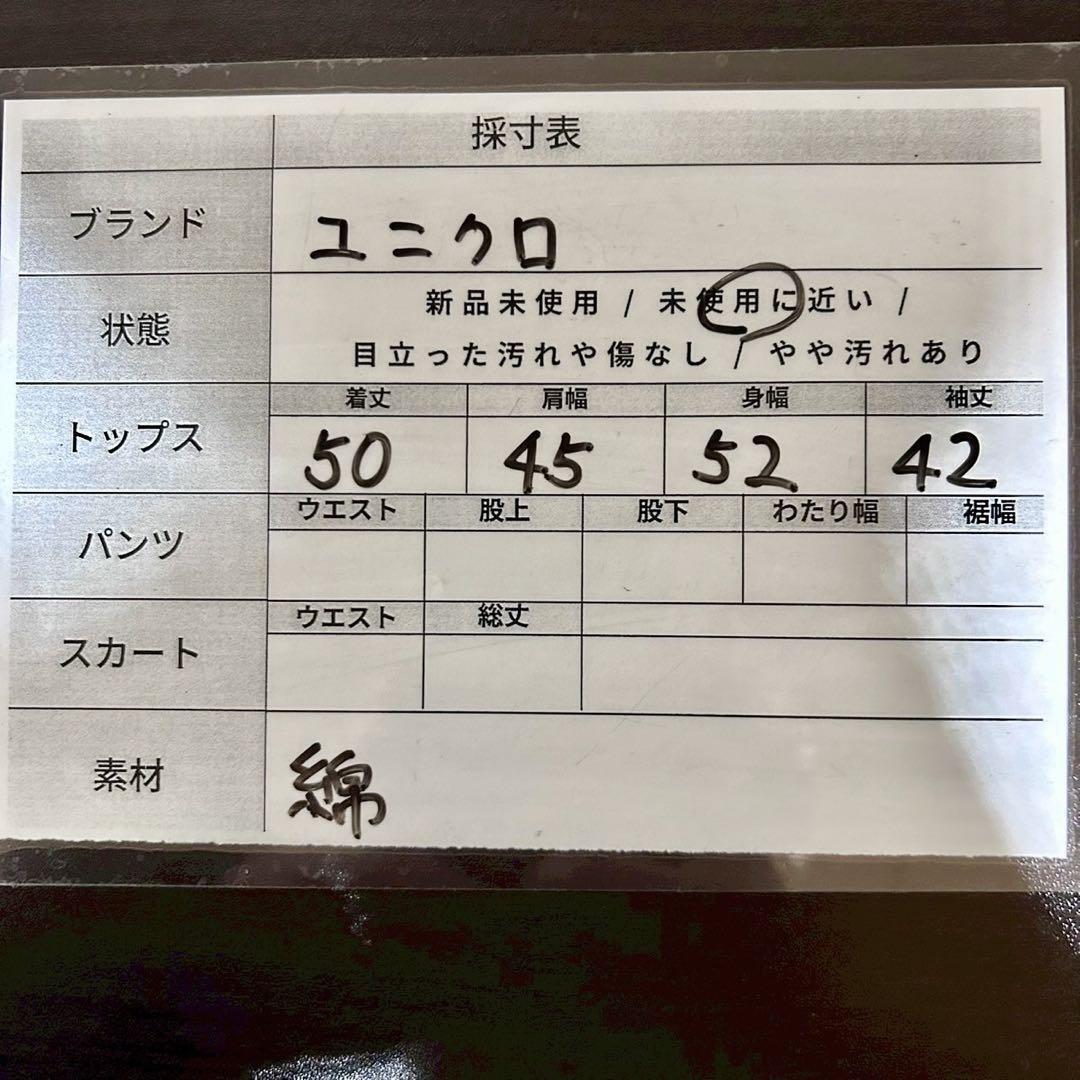 採寸表
ブランド ユニクロ
状態 新品未使用 / 未使用に近い /
目立った汚れや傷なし / やや汚れあり
トップス 着丈 肩幅 身幅 袖丈
50 45 52 42
パンツ ウエスト 股上 股下 わたり幅 裾幅
スカート ウエスト 総丈
素材 綿